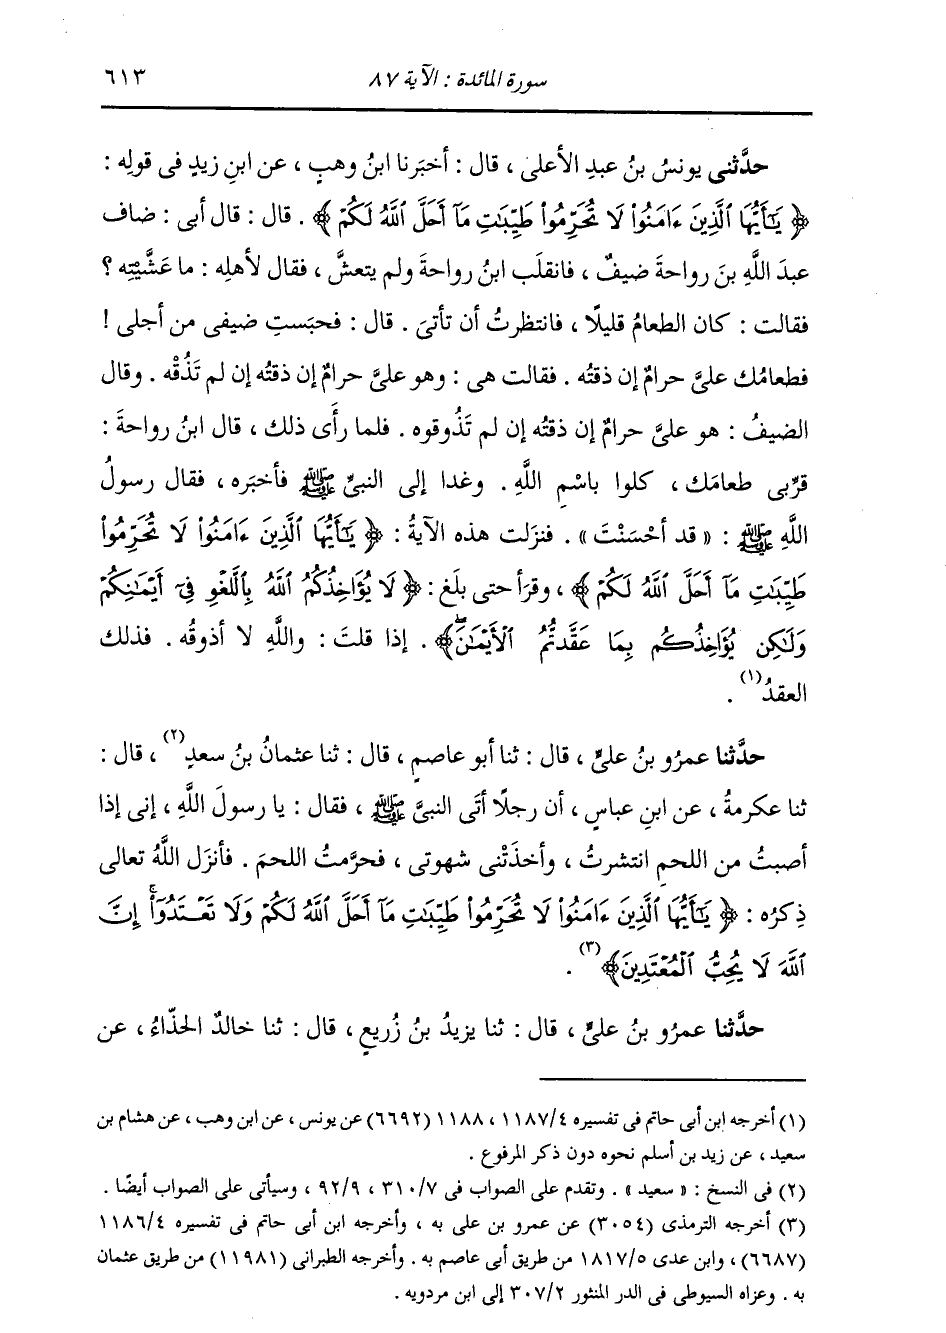 سورة المائدة : الآية ٨٧
٦١٣
حدَّثنى يونسُ بنُ عبدِ الأعلى ، قال : أخبَرنا ابنُ وهبٍ ، عن ابنِ زيدٍ فى قولِه :
﴿ يَٰٓأَيُّهَا ٱلَّذِينَ ءَامَنُوا۟ لَا تُحَرِّمُوا۟ طَيِّبَٰتِ مَآ أَحَلَّ ٱللَّهُ لَكُمْ ﴾ . قال : قال أبى : ضاف
عبدَ اللَّهِ بنَ رواحةَ ضيفٌ ، فانقلَب ابنُ رواحةَ ولم يتعشَّ ، فقال لأهلِه : ما عَشَّيْتِه ؟
فقالت : كان الطعامُ قليلًا ، فانتظرتُ أن تأتىَ . قال : فحبَستِ ضيفى من أجلى !
فطعامُك علىَّ حرامٌ إن ذقتُه . فقالت هى : وهو علىَّ حرامٌ إن ذقتُه إن لم تَذُقْه . وقال
الضيفُ : هو علىَّ حرامٌ إن ذقتُه إن لم تَذُوقوه . فلما رأَى ذلك ، قال ابنُ رواحةَ :
قرِّبى طعامَك ، كلوا باسْمِ اللَّهِ . وغدا إلى النبىِّ ﷺ فأخبَره ، فقال رسولُ
اللَّهِ ﷺ : « قد أحْسَنْتَ » . فنزَلت هذه الآيةُ : ﴿ يَٰٓأَيُّهَا ٱلَّذِينَ ءَامَنُوا۟ لَا تُحَرِّمُوا۟
طَيِّبَٰتِ مَآ أَحَلَّ ٱللَّهُ لَكُمْ ﴾ ، وقرَأ حتى بلَغ : ﴿ لَا يُؤَاخِذُكُمُ ٱللَّهُ بِٱللَّغْوِ فِىٓ أَيْمَٰنِكُمْ
وَلَٰكِن يُؤَاخِذُكُم بِمَا عَقَّدتُّمُ ٱلْأَيْمَٰنَ ۖ ﴾ . إذا قلتَ : واللَّهِ لا أذوقُه . فذلك
العقدُ(١) .
حدَّثنا عمرُو بنُ علىٍّ ، قال : ثنا أبو عاصمٍ ، قال : ثنا عثمانُ بنُ سعدٍ(٢) ، قال :
ثنا عكرمةُ ، عن ابنِ عباسٍ ، أن رجلًا أتَى النبىَّ ﷺ ، فقال : يا رسولَ اللَّهِ ، إنى إذا
أصبتُ من اللحمِ انتشرتُ ، وأخذَتْنى شهوتى ، فحرَّمتُ اللحمَ . فأنزَل اللَّهُ تعالى
ذِكرُه : ﴿ يَٰٓأَيُّهَا ٱلَّذِينَ ءَامَنُوا۟ لَا تُحَرِّمُوا۟ طَيِّبَٰتِ مَآ أَحَلَّ ٱللَّهُ لَكُمْ وَلَا تَعْتَدُوٓا۟ ۚ إِنَّ
ٱللَّهَ لَا يُحِبُّ ٱلْمُعْتَدِينَ ﴾(٣) .
حدَّثنا عمرُو بنُ علىٍّ ، قال : ثنا يزيدُ بنُ زُريعٍ ، قال : ثنا خالدٌ الحذّاءُ ، عن
(١) أخرجه ابن أبى حاتم فى تفسيره ٤/١١٨٧ ، ١١٨٨ (٦٦٩٢) عن يونس ، عن ابن وهب ، عن هشام بن
سعيد ، عن زيد بن أسلم نحوه دون ذكر المرفوع .
(٢) فى النسخ : « سعيد » . وتقدم على الصواب فى ٧/٣١٠ ، ٩/٩٢ ، وسيأتى على الصواب أيضًا .
(٣) أخرجه الترمذى (٣٠٥٤) عن عمرو بن على به ، وأخرجه ابن أبى حاتم فى تفسيره ٤/١١٨٦
(٦٦٨٧) ، وابن عدى ٥/١٨١٧ من طريق أبى عاصم به . وأخرجه الطبرانى (١١٩٨١) من طريق عثمان
به . وعزاه السيوطى فى الدر المنثور ٢/٣٠٧ إلى ابن مردويه .